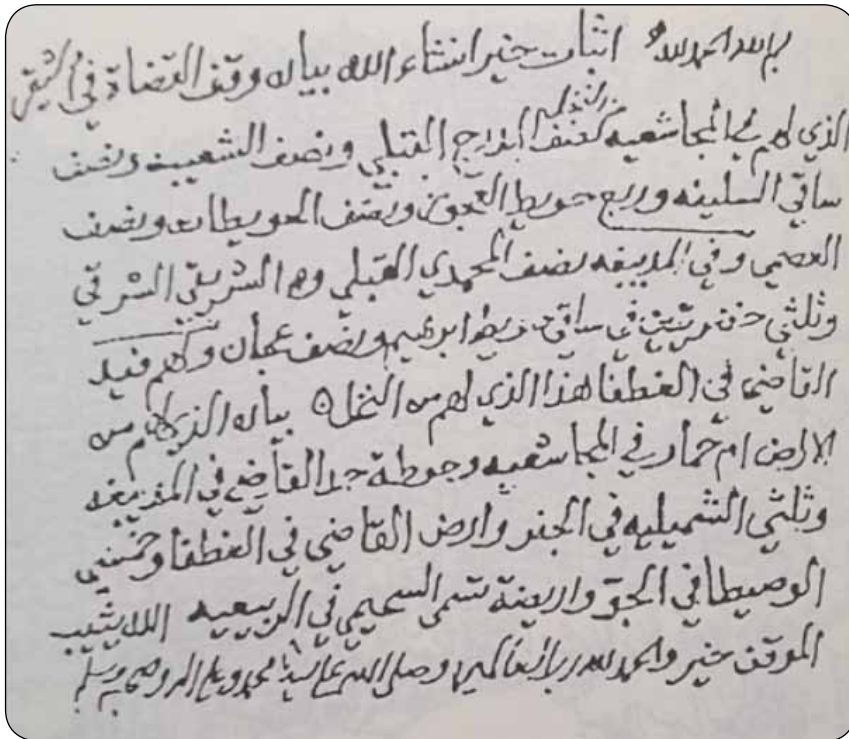 بسم الله الحمد لله اثبات خير انشاء الله بيان وقف القضاة في اشيقر
من النخل
الذي لهم في المجاشعيه نصف الدارج القبلي ونصف الشعيبيه ونصف
ساقي السليفه وربع حويط العجوز ونصف الحويطات ونصف
العصمي وفي المديبغه نصف المحمدي القبلي وهو الشريقي الشرقي
وثلثي في ساقي حويط ابرهيم ونصف عجلان ولهم فيد
القاضي في الغطفا هذا الذي لهم من النخل بيان الذي لهم من
الارض ام حمار في المجاشعيه وحوطة جد القاضي في المديبغه
وثلثي الشميليه في الجفر وارض القاضي في الغطفا وخمسي
الوصيطا في الجو واريضة تسمى السحيمي في الربيعيه الله يثيب
الموقف خير والحمد لله رب العالمين وصلى الله على سيدنا محمد وعلى اله وصحبه وسلم